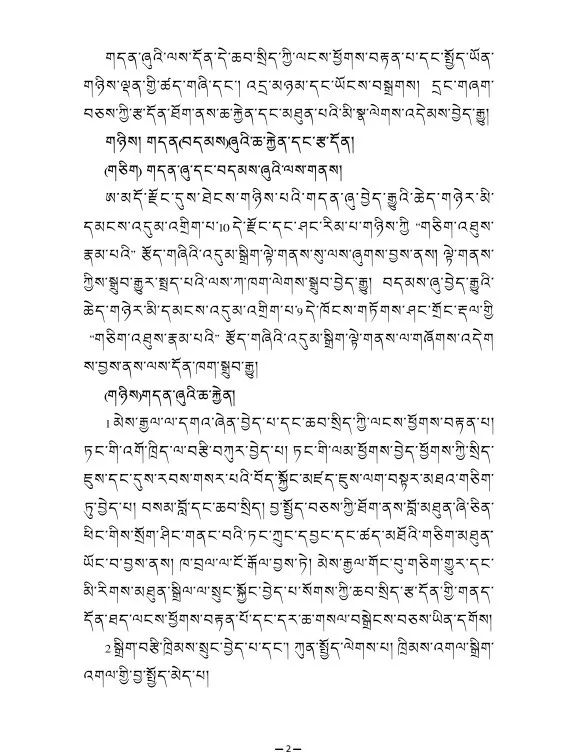 གདན་ཞུའི་ལས་དོན་དེ་ཆབ་སྲིད་ཀྱི་ལངས་ཕྱོགས་བརྟན་པ་དང་སྤྱོད་ཡོན་
གཉིས་ལྡན་གྱི་ཚད་གཞི་དང་། འདྲ་མཉམ་དང་ཡོངས་བསྒྲགས། དྲང་གཞག་
བཅས་ཀྱི་རྩ་དོན་ཐོག་ནས་ཆ་རྐྱེན་དང་མཐུན་པའི་མི་སྣ་ལེགས་འདེམས་བྱེད་རྒྱུ།
གཉིས། གདན(བདམས)ཞུའི་ཆ་རྐྱེན་དང་རྩ་དོན།
(གཅིག) གདན་ཞུ་དང་བདམས་ཞུའི་ལས་གནས།
ཨ་མདོ་རྫོང་དུས་ཐེངས་གཉིས་པའི་གདན་ཞུ་བྱེད་རྒྱུའི་ཆེད་གཉེར་མི་
དམངས་འདུམ་འགྲིག་པ་10དེ་རྫོང་དང་ཤང་རིམ་པ་གཉིས་ཀྱི “གཅིག་འཐུས་
རྣམ་པའི” རྩོད་གཞིའི་འདུམ་སྒྲིག་ལྟེ་གནས་སུ་ལས་ཞུགས་བྱས་ནས། ལྟེ་གནས་
ཀྱིས་སྒྲུབ་རྒྱུར་སྤྲད་པའི་ལས་ཀ་ཁག་ལེགས་སྒྲུབ་བྱེད་རྒྱུ། བདམས་ཞུ་བྱེད་རྒྱུའི་
ཆེད་གཉེར་མི་དམངས་འདུམ་འགྲིག་པ་9དེ་ཁོངས་གཏོགས་ཤང་གྲོང་རྡལ་གྱི
“གཅིག་འཐུས་རྣམ་པའི” རྩོད་གཞིའི་འདུམ་སྒྲིག་ལྟེ་གནས་ལ་གཞོགས་འདེག
ས་བྱས་ནས་ལས་དོན་ཁག་སྒྲུབ་རྒྱུ།
(གཉིས)གདན་ཞུའི་ཆ་རྐྱེན།
1 མེས་རྒྱལ་ལ་དགའ་ཞེན་བྱེད་པ་དང་ཆབ་སྲིད་ཀྱི་ལངས་ཕྱོགས་བརྟན་པ།
ཏང་གི་འགོ་ཁྲིད་ལ་བརྩི་བཀུར་བྱེད་པ། ཏང་གི་ལམ་ཕྱོགས་བྱེད་ཕྱོགས་ཀྱི་སྲིད་
ཇུས་དང་དུས་རབས་གསར་པའི་བོད་སྐྱོང་མཛད་ཇུས་ལག་བསྟར་མཐའ་གཅིག་
ཏུ་བྱེད་པ། བསམ་བློ་དང་ཆབ་སྲིད། བྱ་སྤྱོད་བཅས་ཀྱི་ཐོག་ནས་བློ་མཐུན་ཞི་ཅིན་
ཕིང་གིས་སྲོག་ཤིང་གནང་བའི་ཏང་ཀྲུང་དབྱང་དང་ཚད་མཐོའི་གཅིག་མཐུན་
ཡོང་བ་བྱས་ནས། ཁ་བྲལ་ལ་ངོ་རྒོལ་བྱས་ཏེ། མེས་རྒྱལ་གོང་བུ་གཅིག་གྱུར་དང་
མི་རིགས་མཐུན་སྒྲིལ་ལ་སྲུང་སྐྱོང་བྱེད་པ་སོགས་ཀྱི་ཆབ་སྲིད་རྩ་དོན་གྱི་གནད་
དོན་ཐད་ལངས་ཕྱོགས་བརྟན་པོ་དང་དར་ཆ་གསལ་བསྒྲེངས་བཅས་ཡིན་དགོས།
2 སྒྲིག་བརྩི་ཁྲིམས་སྲུང་བྱེད་པ་དང་། ཀུན་སྤྱོད་ལེགས་པ། ཁྲིམས་འགལ་སྒྲིག་
འགལ་གྱི་བྱ་སྤྱོད་མེད་པ།
— 2 —